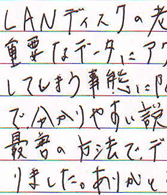 LANディスクの老
重要なデータにア
してしまう事態に陥
で分かりやすい説
最善の方法でデ
りました。ありがい